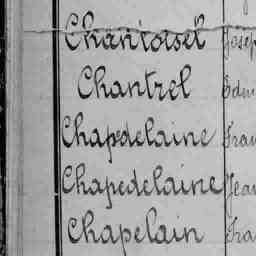 Chantoisel Josep
Chantrel Edm
Chapedelaine Fran
Chapedelaine Jean
Chapelain Fra